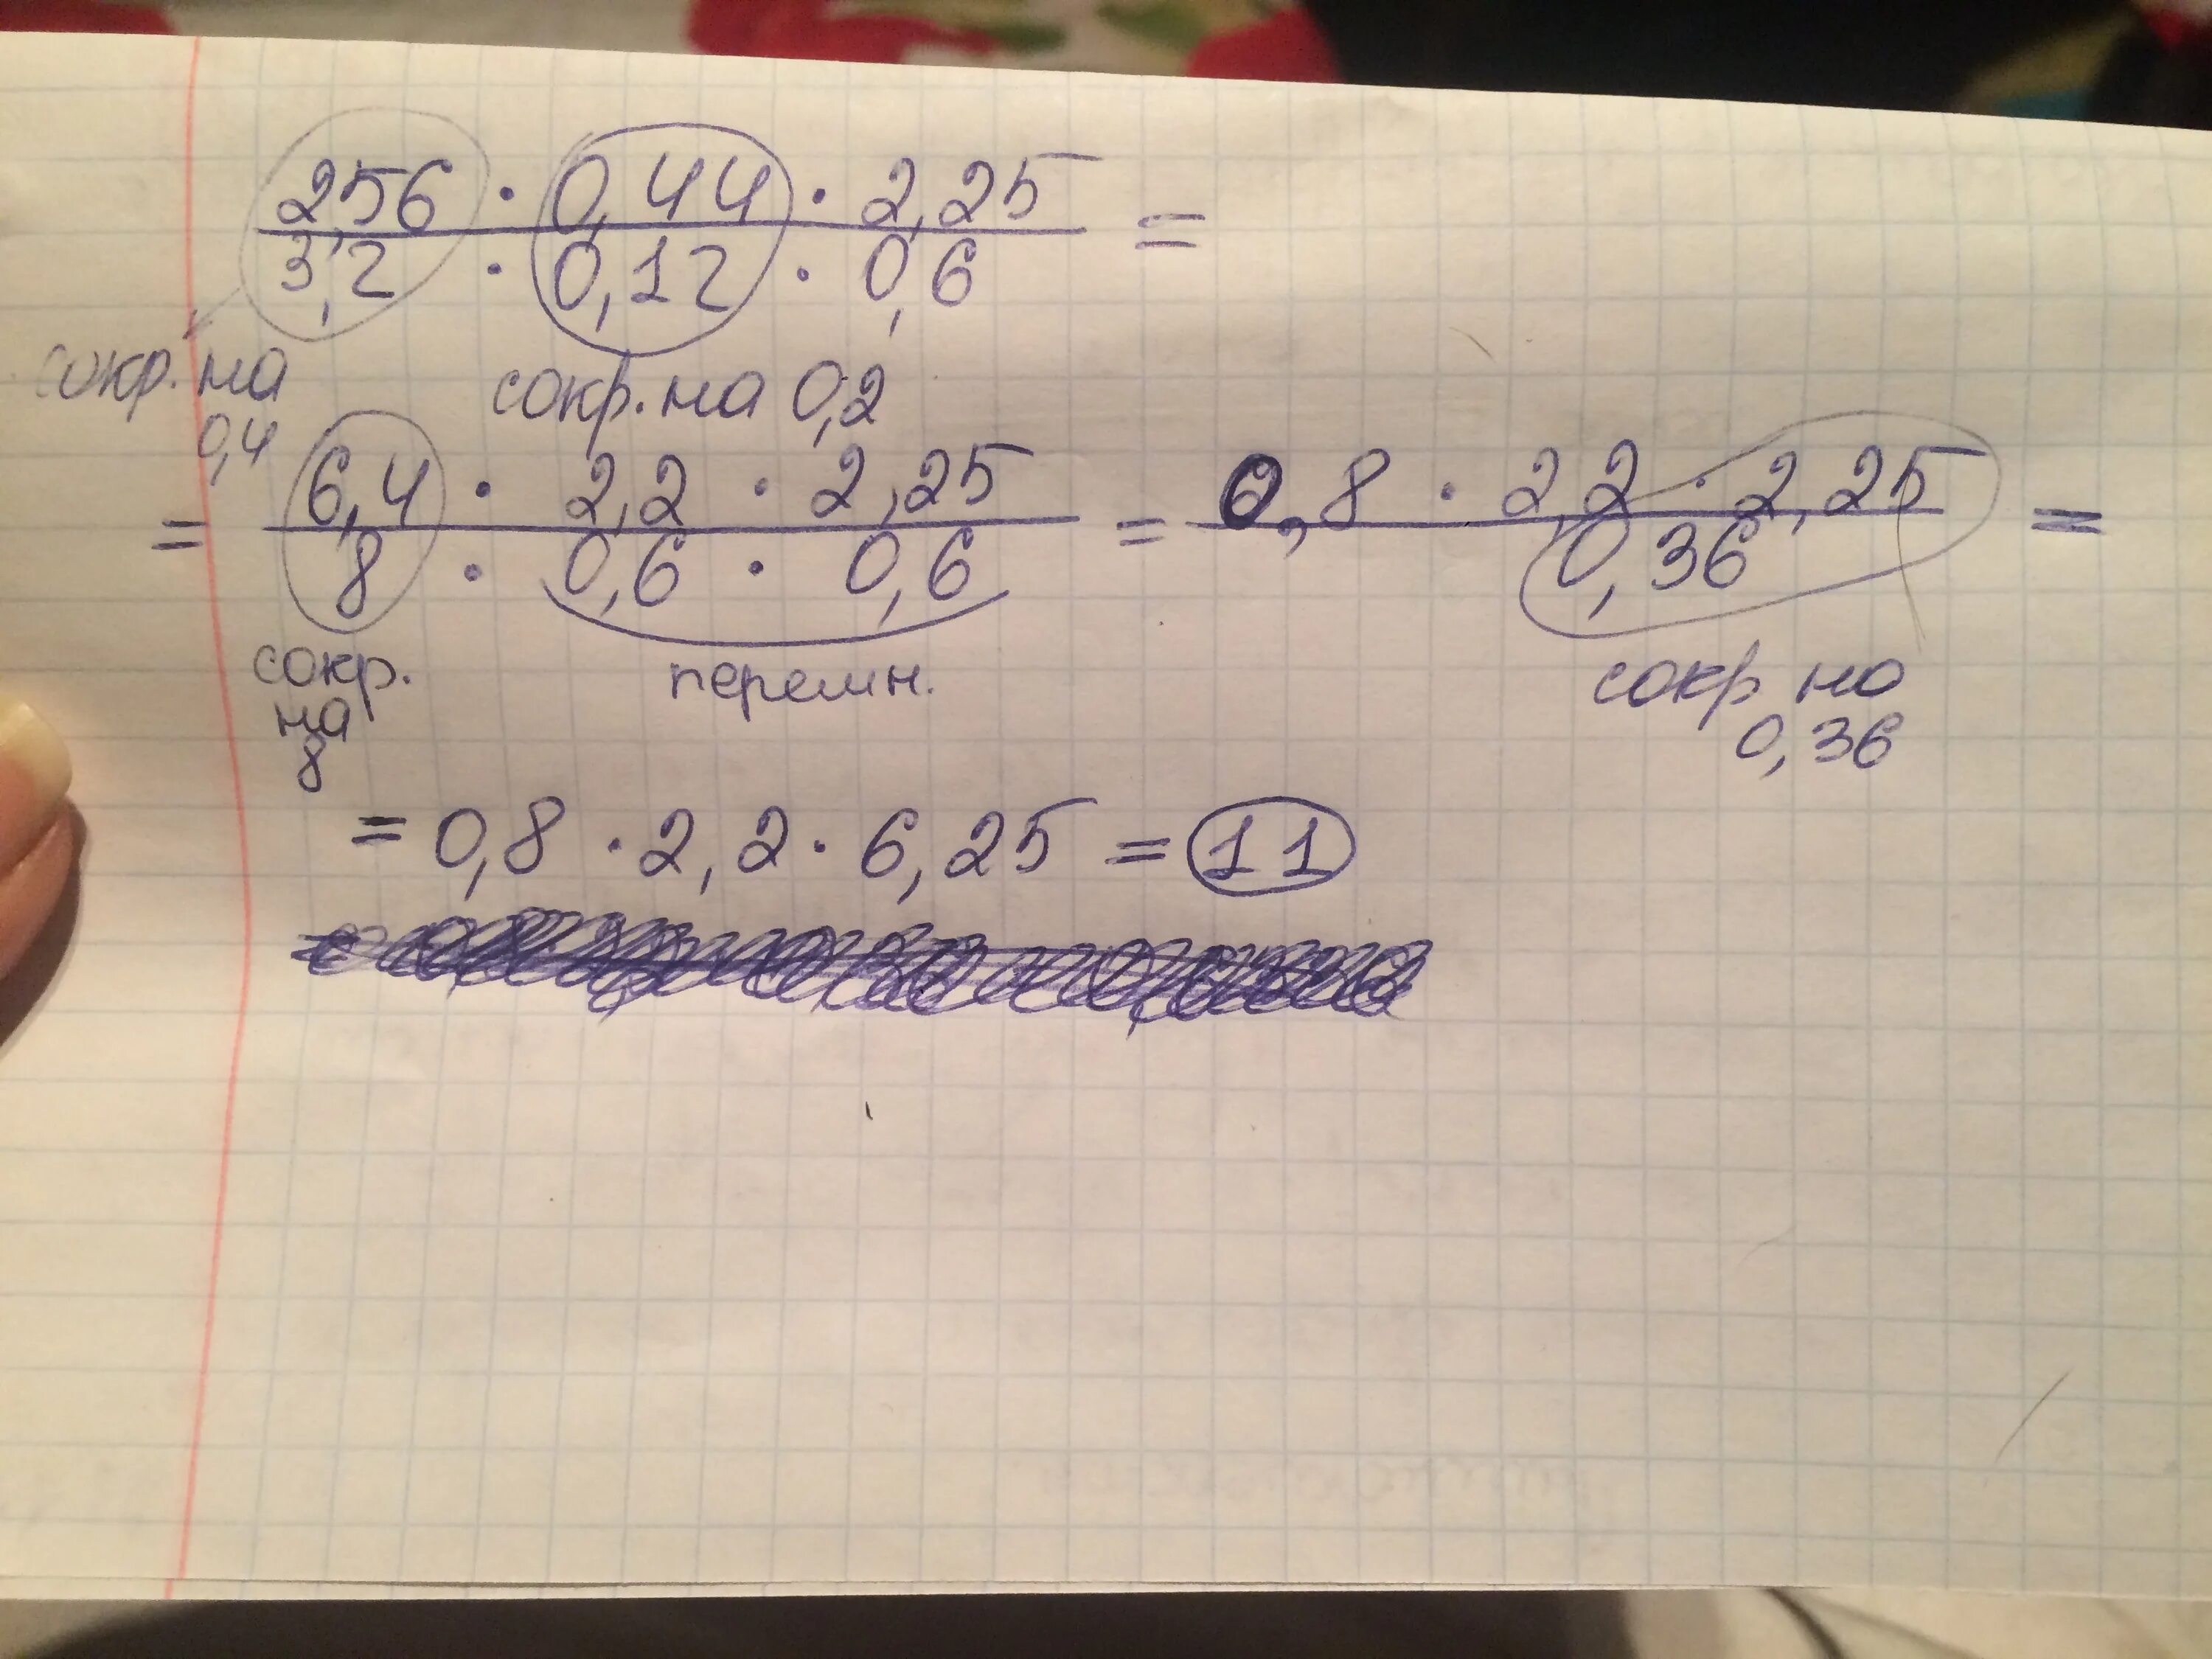 2,56 · 0,44 · 2,25 =
3,2 · 0,12 · 0,6
сокр. на 0,4
сокр. на 0,2
= 6,4 · 2,2 · 2,25 = 0,8 · 2,2 · 2,25 =
8 · 0,6 · 0,6
0,36
сокр. на 8
перемн.
сокр на 0,36
= 0,8 · 2,2 · 6,25 = 11